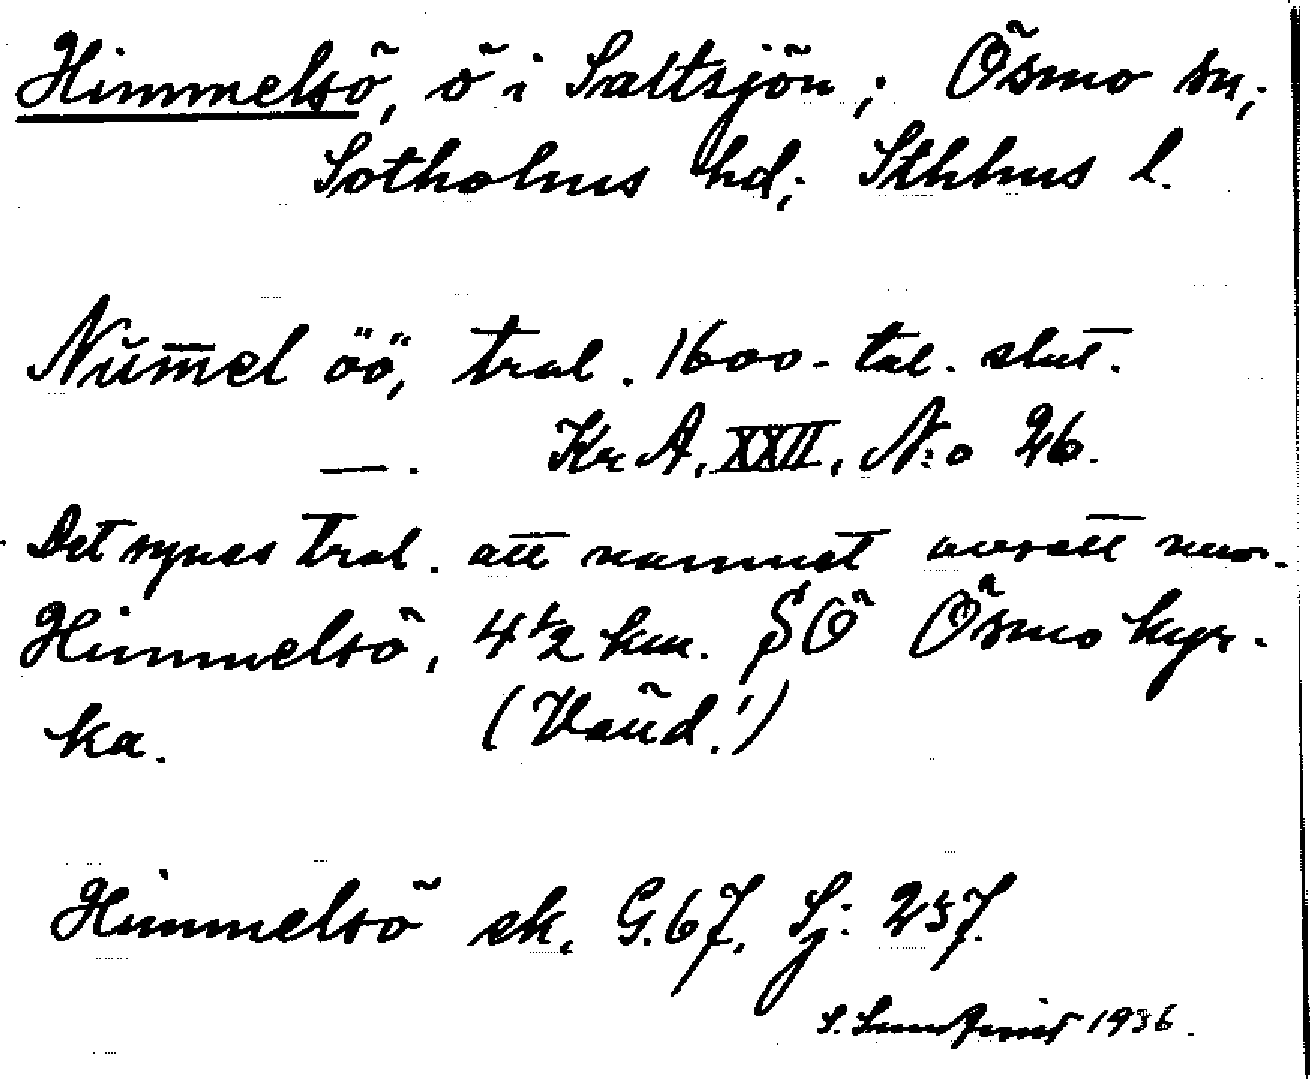 Himmelsö, ö i Saltsjön; Ösmo sn;
Sotholms hd; Sthlms l.
Nūm̄el öö, trol. 1600-tal. slut.
—. Kr A. XXII. N:o 26.
Det synes trol. att namnet avsett nuv.
Himmelsö, 4 1/2 km. SÖ Ösmo kyr-
ka. (Vāud!)
Himmelsö ek. G.67. Sj: 257.
S. Sundqvist 1936.